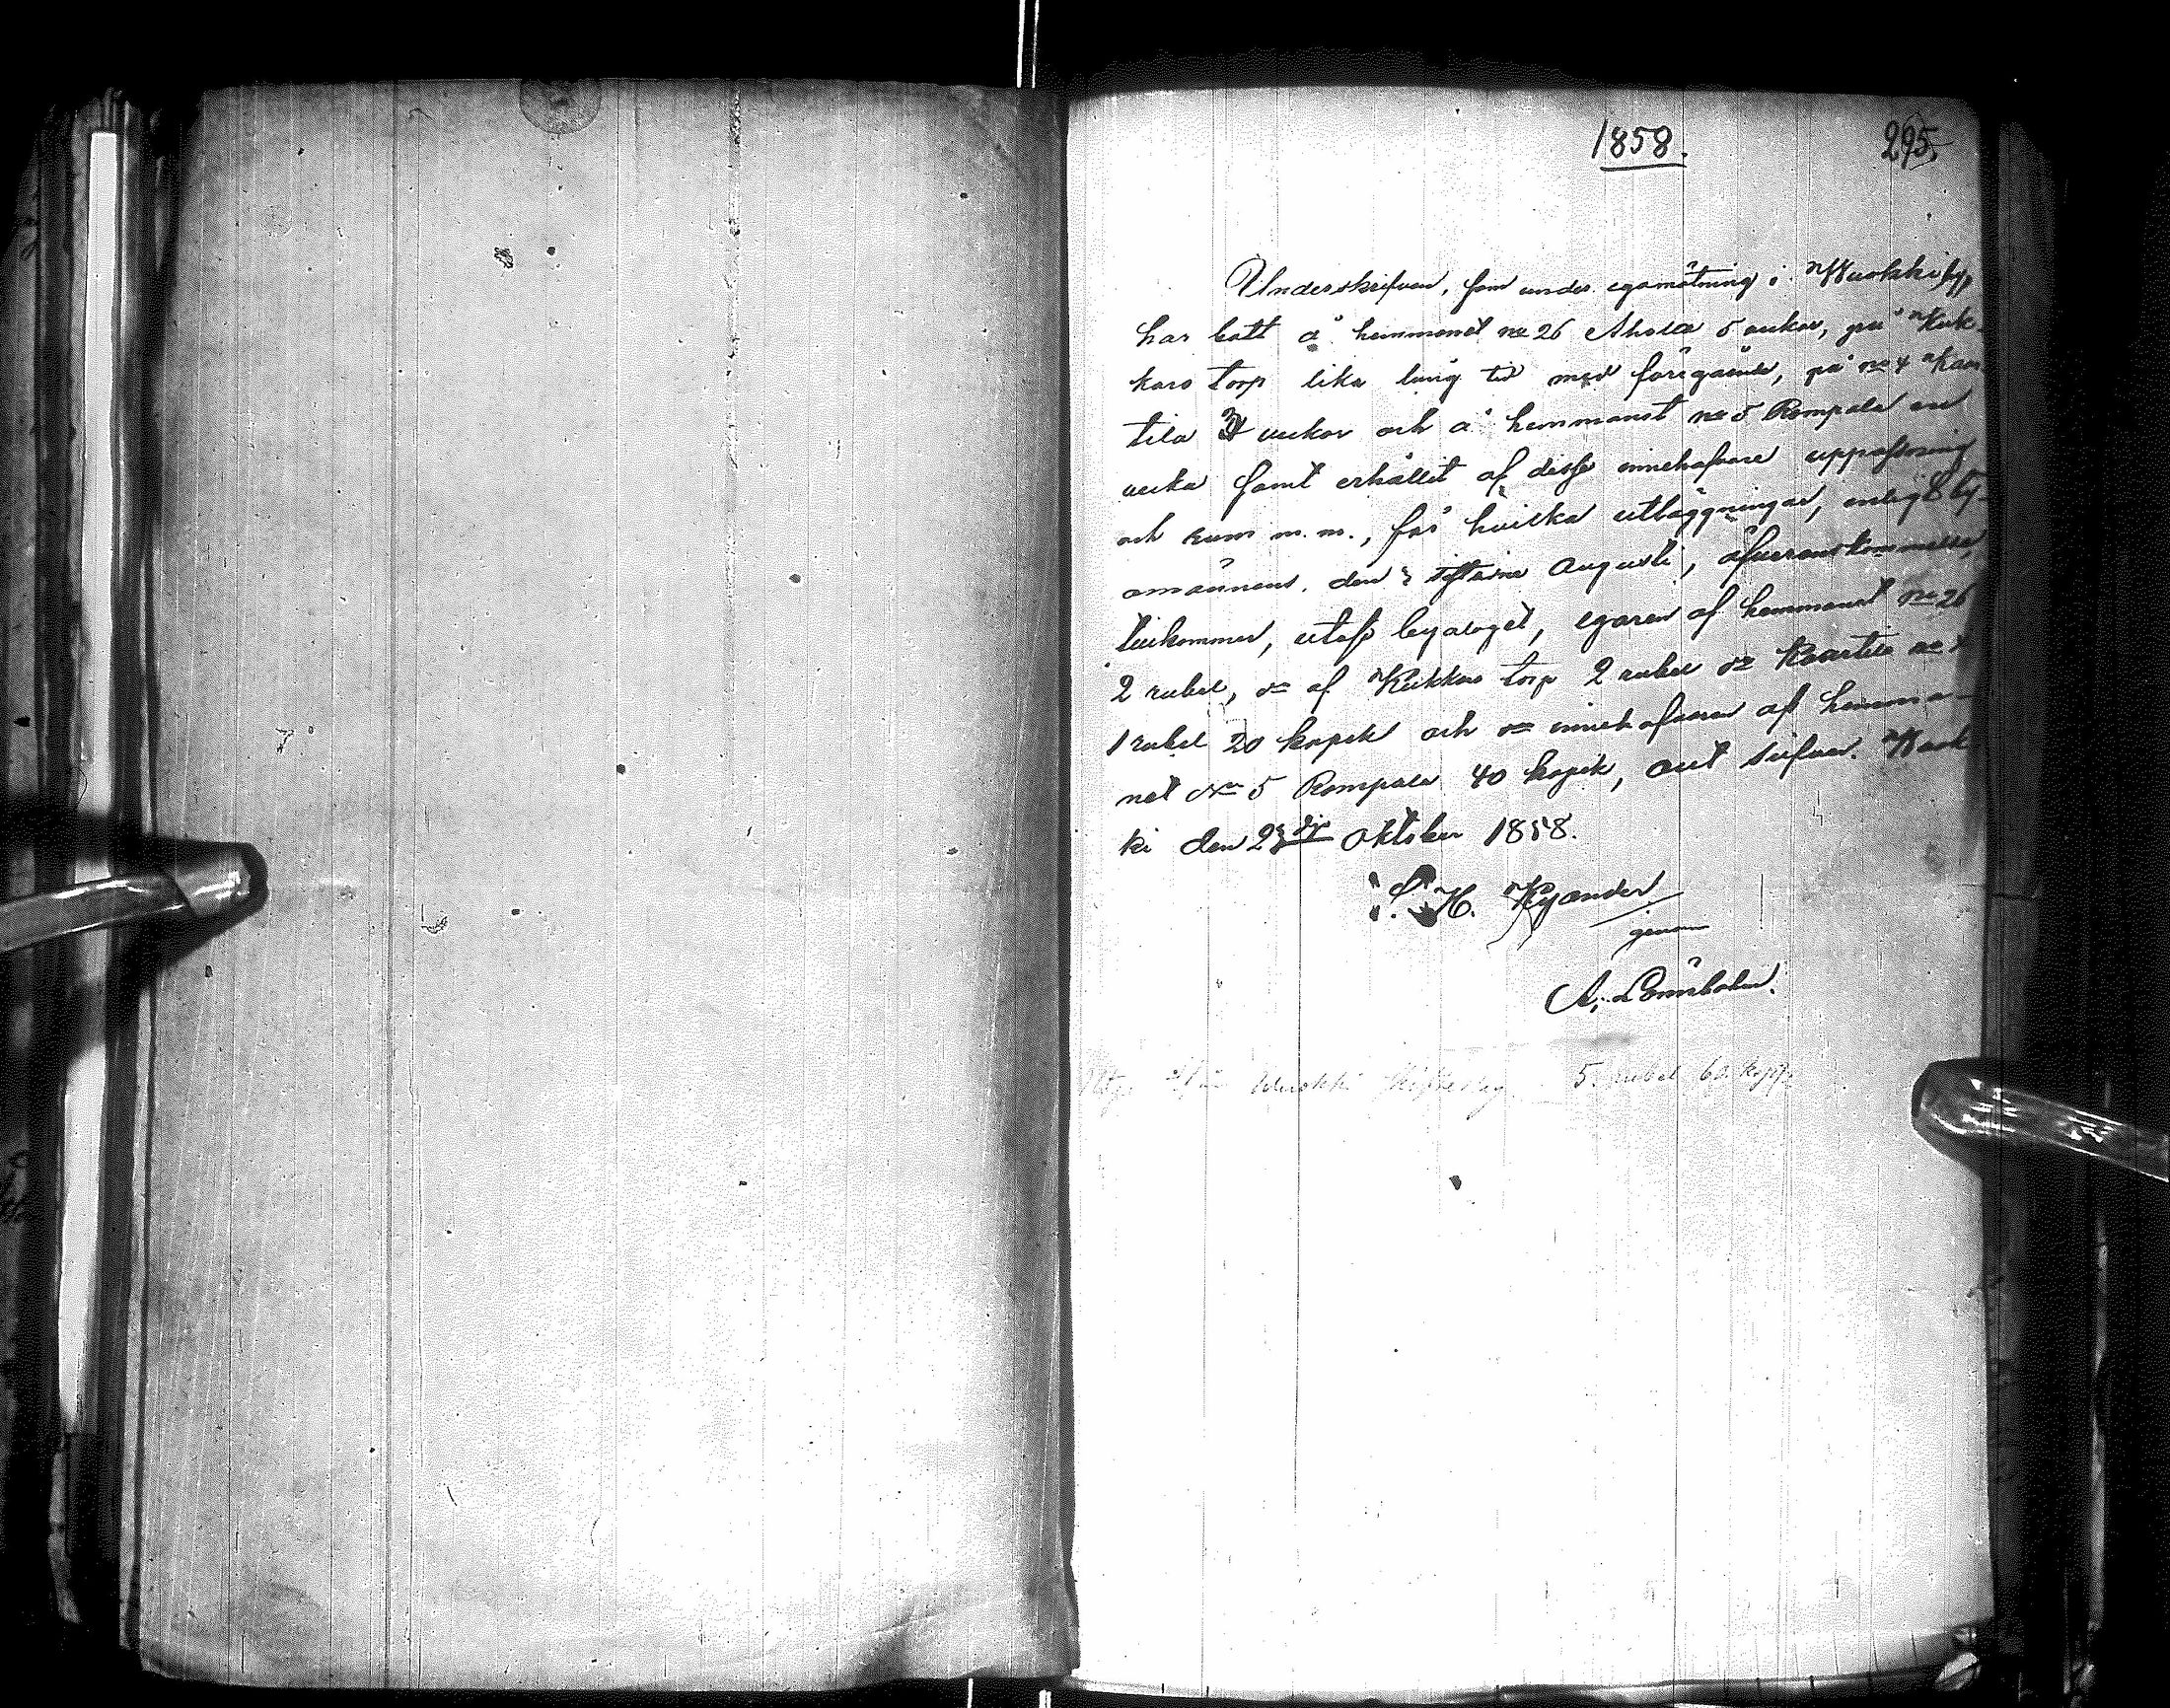 1858.
295.
Underskrifven, som under egomätning i Wuokki by,
har bott å hemmanet no 26 Ahola 5 veckor, på Kuk-
karo torp lika lång tid med föregående, på no 4 Kaar-
tila 3 veckor och å hemmanet no 5 Rompala en
vecka samt erhållit af desse innehafvare uppassning
och rum m. m., för hvilka utläggningar, enligt by-
amännens, den sistne Augusti, öfverenskommelse,
tillkommer, utaf byalaget, egaren af hemmanet no 26
2 rubel, do af Kukkaro torp 2 rubel do Kaartila no 4
1 rubel 20 kopek och do innehafvaren af hemma-
net No 5 Rompala 40 kopek, allt silfver. Wuok-
ki den 23dje Oktober 1858.
L. H. Kyander
genom
A. Lönnbohm.
Wuokki skifteslag 5 rubel 60 kop.